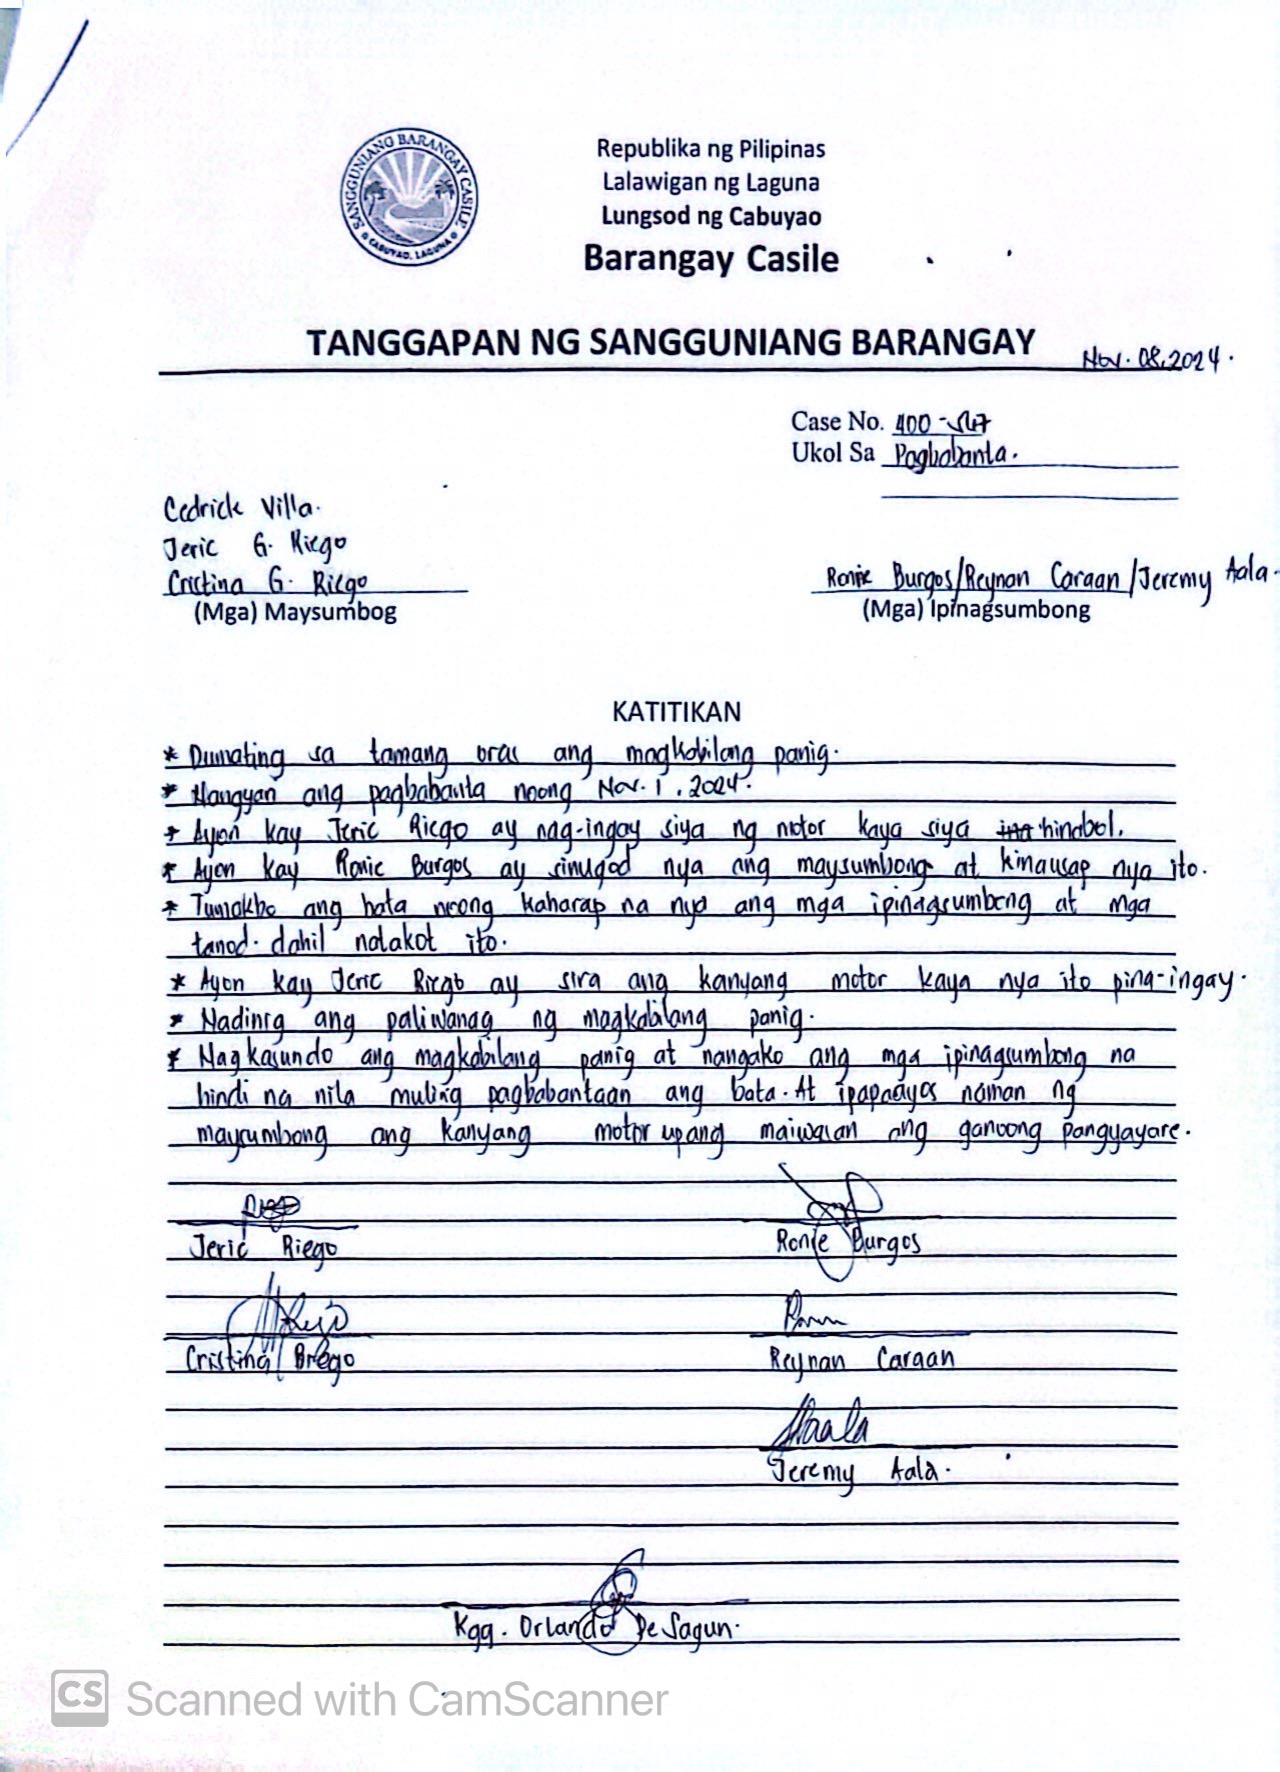 SANGGUNIANG BARANGAY CASILE
CABUYAO, LAGUNA
Republika ng Pilipinas
Lalawigan ng Laguna
Lungsod ng Cabuyao
Barangay Casile
TANGGAPAN NG SANGGUNIANG BARANGAY
Nov. 08, 2024.
Case No. 400
Ukol Sa Pagbabanta.
Cedrick Villa.
Jeric G. Riego
Cristina G. Riego
(Mga) Maysumbog
Ronie Burgos/Reynan Caraan/Jeremy Aala.
(Mga) Ipinagsumbong
KATITIKAN
* Dumating sa tamang oras ang magkabilang panig.
* Nangyari ang pagbabanta noong Nov. 1, 2024.
* Ayon kay Jeric Riego ay nag-ingay siya ng motor kaya siya hinabol.
* Ayon kay Ronie Burgos ay sinugod nya ang maysumbong at kinausap nya ito.
* Tumakbo ang bata noong kaharap na nya ang mga ipinagsumbong at mga
tanod. dahil natakot ito.
* Ayon kay Jeric Riego ay sira ang kanyang motor kaya nya ito ping-ingay.
* Nadinig ang paliwanag ng magkabilang panig.
* Nagkasundo ang magkabilang panig at nangako ang mga ipinagsumbong na
hindi na nila muling pagbabantaan ang bata. At ipapaayos naman ng
maysumbong ang kanyang motor upang maiwasan ang ganoong pangyayare.
Jeric Riego
Ronie Burgos
Cristina Briego
Reynan Caraan
Jeremy Aala.
Kgg. Orlando De Sagun.
CS Scanned with CamScanner